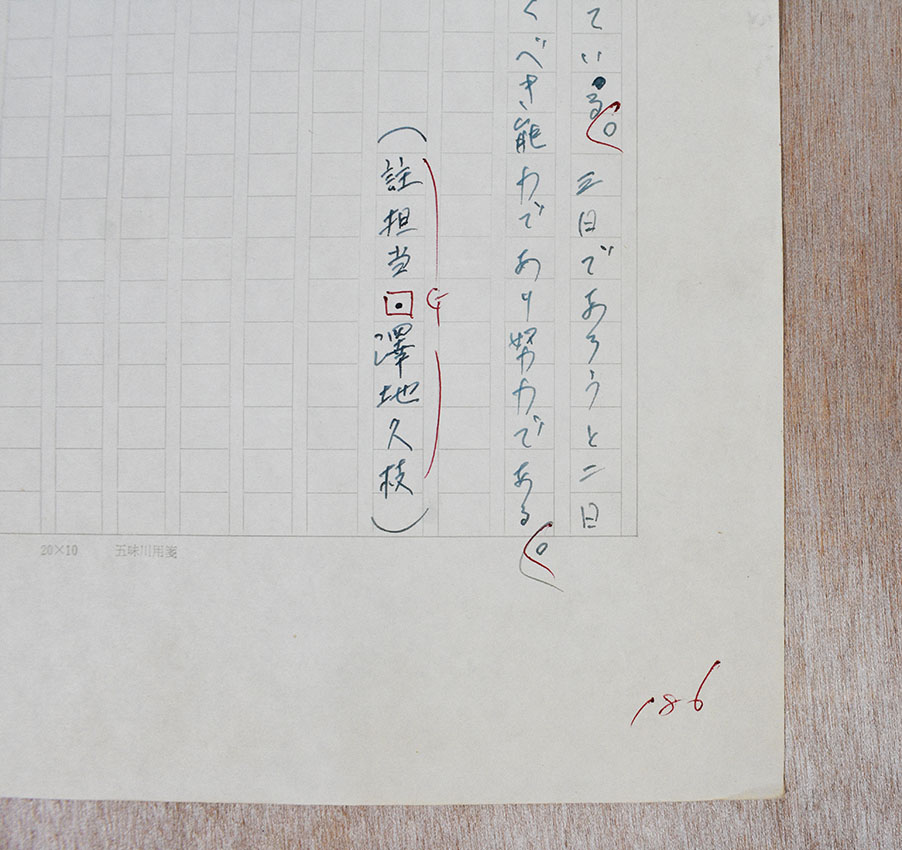 ている。三日であろうと二日
くべき能力であり努力である。
（註担当・澤地久枝）
20×10 五味川用箋
186